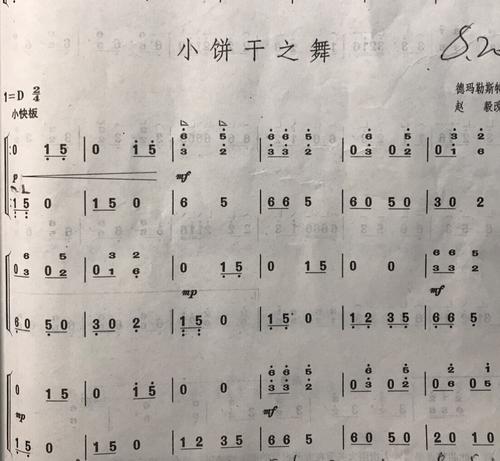 小饼干之舞
8.20
1=D 2/4
德玛勒斯特
小快板
赵 毅改
6 5 6 6 5 6 5 3 2
0 1 5 0 1 5 3 2 3 3 2 0 3 0 2 0 1 6
p mf
1 5 0 1 5 0 6 5 6 6 5 6 0 5 0 3 0 2
6 5 3 2 6 6 5
0 3 0 2 0 1 6 0 1 5 0 1 5 0 0 3 3 2
mp mf
6 0 5 0 3 0 2 1 5 0 1 5 0 1 2 3 5 6 6 5
6 6 5 6 5 2 1
0 1 5 0 1 5 0 0 3 3 2 0 3 0 2 0 6 0 5
mp mf
1 5 0 1 5 0 1 2 3 5 6 6 5 6 0 5 0 2 0 1 0